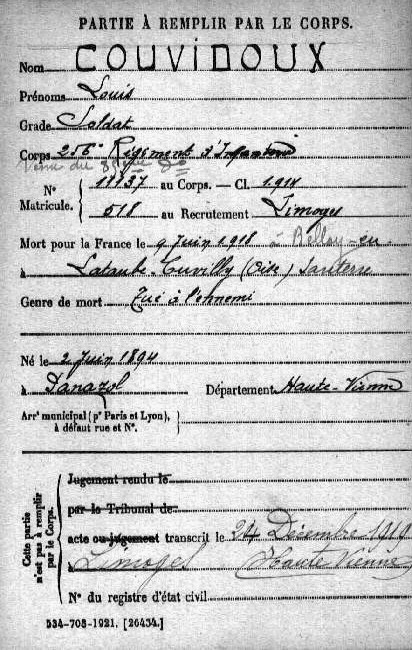 PARTIE À REMPLIR PAR LE CORPS.
Nom COUVIDOUX
Prénoms Louis
Grade Soldat
Corps 256e Régiment d'Infanterie
Venu du
No Matricule. 11137 au Corps. — Cl. 1914
518 au Recrutement Limoges
Mort pour la France le 9 Juin 1918 à Belloy-en-
à Lataule-Cuvilly (Oise) Santerre
Genre de mort Tué à l'ennemi
Né le 2 Juin 1894
à Panazol Département Haute-Vienne
Arrt municipal (pr Paris et Lyon),
à défaut rue et No.
Cette partie n'est pas à remplir par le Corps.
Jugement rendu le
par le Tribunal de
acte ou jugement transcrit le 24 Décembre 1919
à Limoges (Haute Vienne)
No du registre d'état civil
534-708-1921. [26434.]